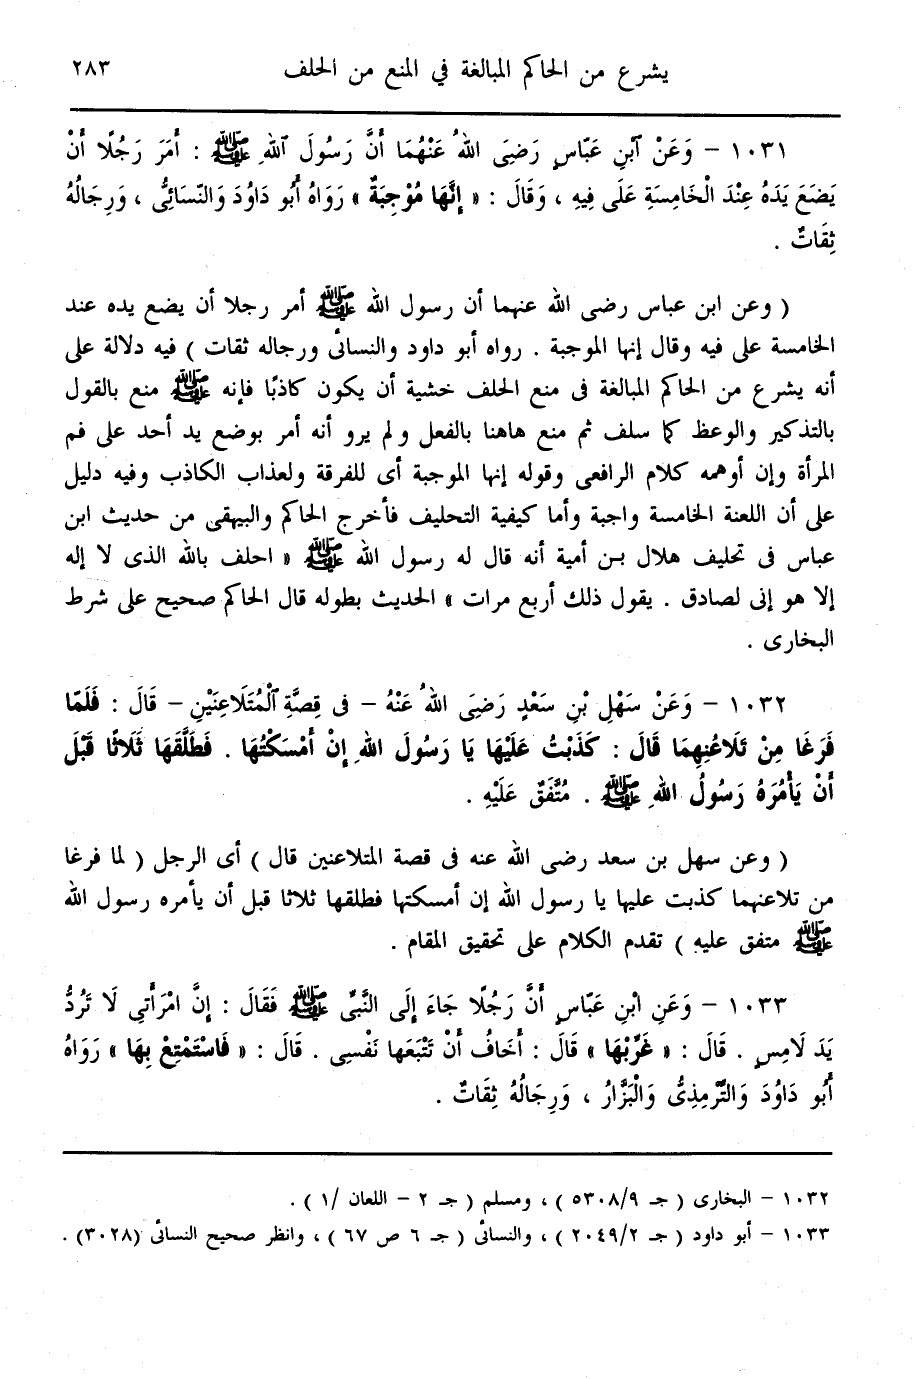 يشرع من الحاكم المبالغة في المنع من الحلف ٢٨٣
١٠٣١ – وَعَنْ ٱبْنِ عَبَّاسٍ رَضِيَ اللهُ عَنْهُمَا أَنَّ رَسُولَ ٱللهِ ﷺ : أَمَرَ رَجُلًا أَنْ
يَضَعَ يَدَهُ عِنْدَ الْخَامِسَةِ عَلَى فِيهِ ، وَقَالَ : « إِنَّهَا مُوْجِبَةٌ » رَوَاهُ أَبُو دَاوُدَ وَالنَّسَائِيُّ ، وَرِجَالُهُ
ثِقَاتٌ .
( وعن ابن عباس رضى الله عنهما أن رسول الله ﷺ أمر رجلا أن يضع يده عند
الخامسة على فيه وقال إنها الموجبة . رواه أبو داود والنسائى ورجاله ثقات ) فيه دلالة على
أنه يشرع من الحاكم المبالغة فى منع الحلف خشية أن يكون كاذبًا فإنه ﷺ منع بالقول
بالتذكير والوعظ كما سلف ثم منع هاهنا بالفعل ولم يرو أنه أمر بوضع يد أحد على فم
المرأة وإن أوهمه كلام الرافعى وقوله إنها الموجبة أى للفرقة ولعذاب الكاذب وفيه دليل
على أن اللعنة الخامسة واجبة وأما كيفية التحليف فأخرج الحاكم والبيهقى من حديث ابن
عباس فى تحليف هلال بـن أمية أنه قال له رسول الله ﷺ « احلف بالله الذى لا إله
إلا هو إنى لصادق . يقول ذلك أربع مرات » الحديث بطوله قال الحاكم صحيح على شرط
البخارى .
١٠٣٢ – وَعَنْ سَهْلِ بْنِ سَعْدٍ رَضِيَ اللهُ عَنْهُ – فى قِصَّةِ ٱلْمُتَلَاعِنَيْنِ – قَالَ : فَلَمَّا
فَرَغَا مِنْ تَلَاعُنِهِمَا قَالَ : كَذَبْتُ عَلَيْهَا يَا رَسُولَ اللهِ إِنْ أَمْسَكْتُهَا . فَطَلَّقَهَا ثَلَاثًا قَبْلَ
أَنْ يَأْمُرَهُ رَسُولُ اللهِ ﷺ . مُتَّفَقٌ عَلَيْهِ .
( وعن سهل بن سعد رضى الله عنه فى قصة المتلاعنين قال ) أى الرجل ( لما فرغا
من تلاعنهما كذبت عليها يا رسول الله إن أمسكتها فطلقها ثلاثا قبل أن يأمره رسول الله
ﷺ متفق عليه ) تقدم الكلام على تحقيق المقام .
١٠٣٣ – وَعَنِ ابْنِ عَبَّاسٍ أَنَّ رَجُلًا جَاءَ إِلَى النَّبِيِّ ﷺ فَقَالَ : إِنَّ امْرَأَتِي لَا تَرُدُّ
يَدَ لَامِسٍ . قَالَ : « غَرِّبْهَا » قَالَ : أَخَافُ أَنْ تَتْبَعَها نَفْسِى . قَالَ : « فَاسْتَمْتِعْ بِهَا » رَوَاهُ
أَبُو دَاوُدَ وَالتِّرْمِذِىُّ وَالْبَزَّارُ ، وَرِجَالُهُ ثِقَاتٌ .
١٠٣٢ – البخارى ( جـ ٥٣٠٨/٩ ) ، ومسلم ( جـ ٢ – اللعان /١ ) .
١٠٣٣ – أبو داود ( جـ ٢٠٤٩/٢ ) ، والنسائى ( جـ ٦ ص ٦٧ ) ، وانظر صحيح النسائى (٣٠٢٨) .